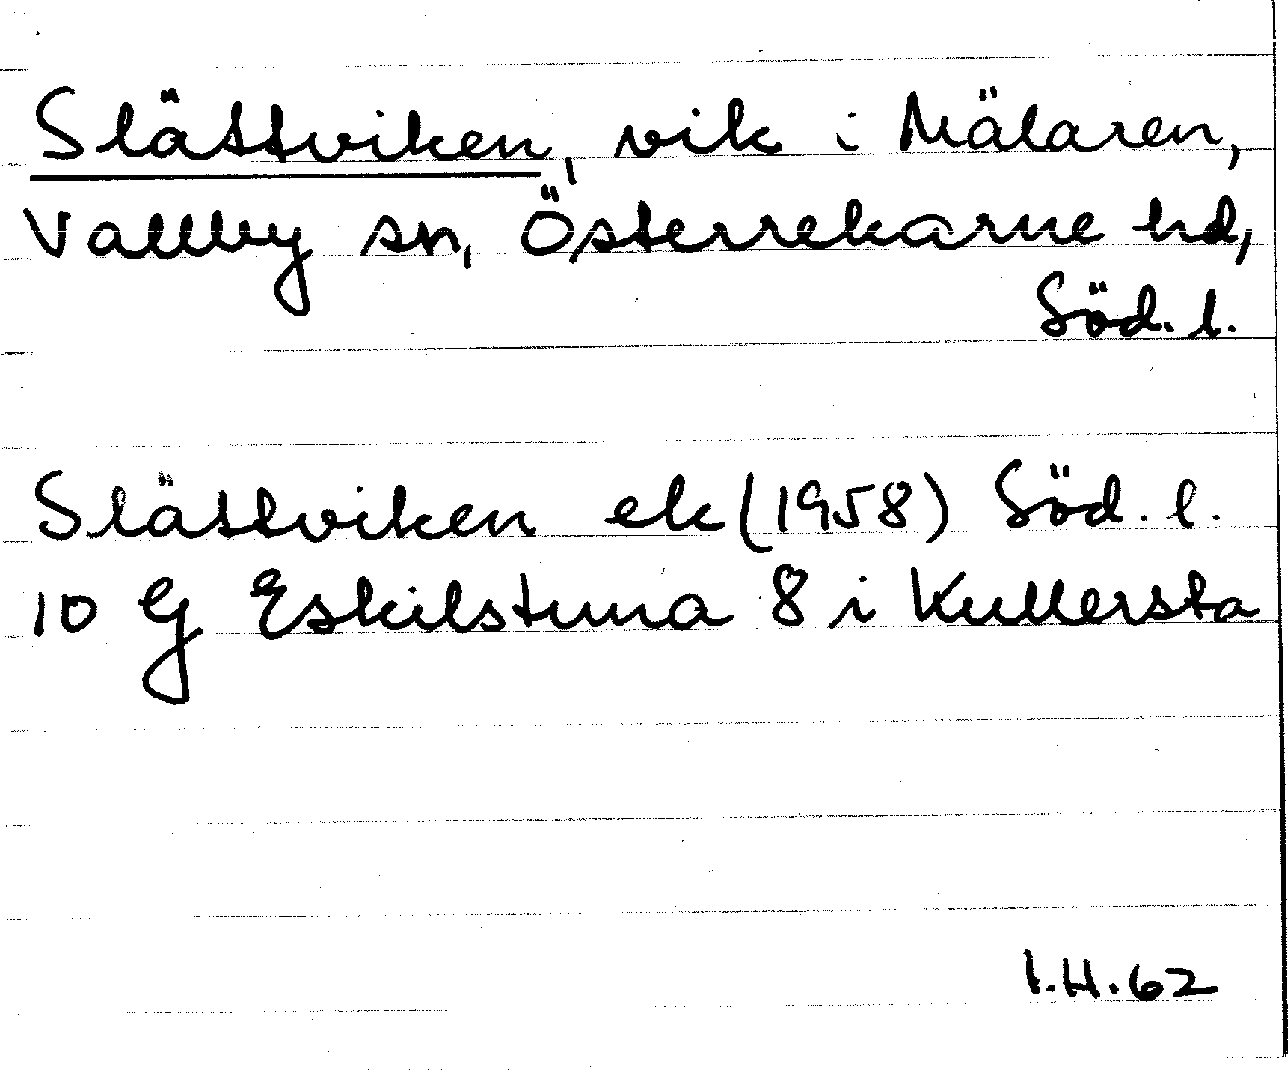 Slättviken, vik i Mälaren,
Vallby sn, Österrekarne hd,
Söd. l.
Slättviken ek (1958) Söd. l.
10 G Eskilstuna 8 i Kullersta
I.H. 62